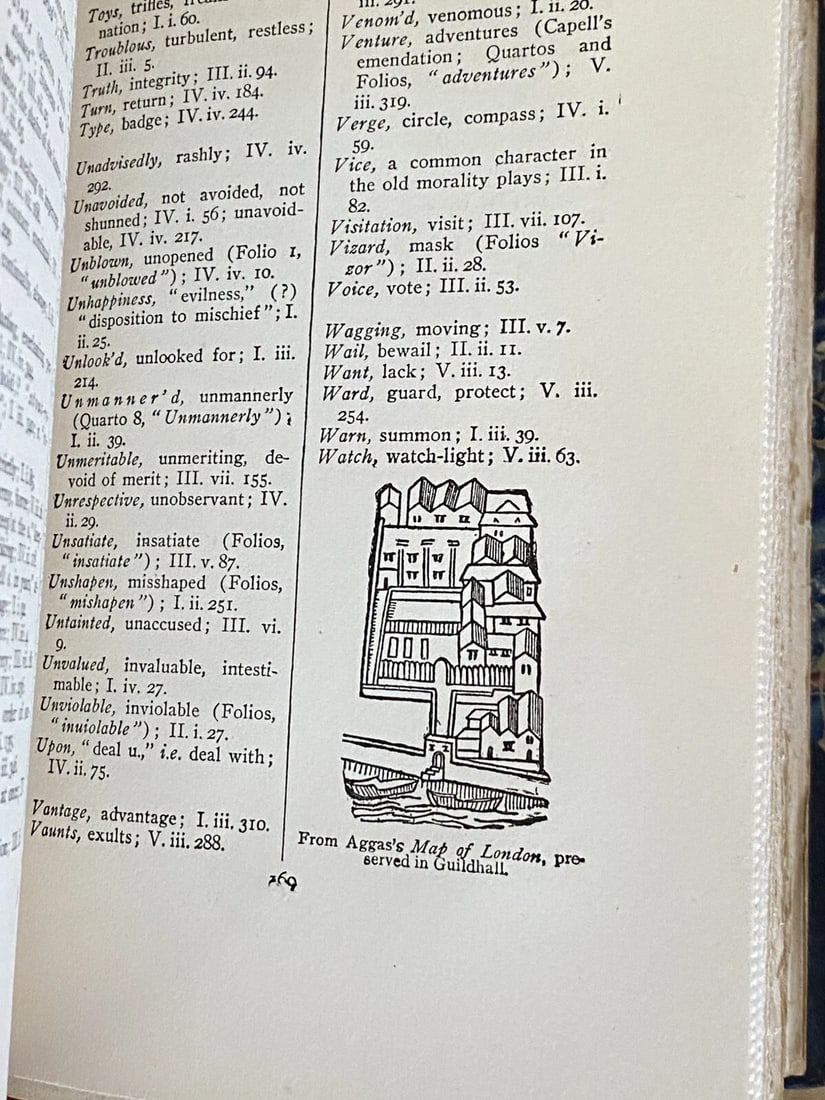 Toys, trifles,
nation; I. i. 60.
Troublous, turbulent, restless;
II. iii. 5.
Truth, integrity; III. ii. 94.
Turn, return; IV. iv. 184.
Type, badge; IV. iv. 244.
Unadvisedly, rashly; IV. iv.
292.
Unavoided, not avoided, not
shunned; IV. i. 56; unavoid-
able, IV. iv. 217.
Unblown, unopened (Folio 1,
"unblowed"); IV. iv. 10.
Unhappiness, "evilness," (?)
"disposition to mischief"; I.
ii. 25.
Unlook'd, unlooked for; I. iii.
214.
Unmanner'd, unmannerly
(Quarto 8, "Unmannerly");
I. ii. 39.
Unmeritable, unmeriting, de-
void of merit; III. vii. 155.
Unrespective, unobservant; IV.
ii. 29.
Unsatiate, insatiate (Folios,
"insatiate"); III. v. 87.
Unshapen, misshaped (Folios,
"mishapen"); I. ii. 251.
Untainted, unaccused; III. vi.
9.
Unvalued, invaluable, intesti-
mable; I. iv. 27.
Unviolable, inviolable (Folios,
"inuiolable"); II. i. 27.
Upon, "deal u.," i.e. deal with;
IV. ii. 75.
Vantage, advantage; I. iii. 310.
Vaunts, exults; V. iii. 288.
iii. 291.
Venom'd, venomous; I. ii. 20.
Venture, adventures (Capell's
emendation; Quartos and
Folios, "adventures"); V.
iii. 319.
Verge, circle, compass; IV. i.
59.
Vice, a common character in
the old morality plays; III. i.
82.
Visitation, visit; III. vii. 107.
Vizard, mask (Folios "Vi-
zor"); II. ii. 28.
Voice, vote; III. ii. 53.
Wagging, moving; III. v. 7.
Wail, bewail; II. ii. 11.
Want, lack; V. iii. 13.
Ward, guard, protect; V. iii.
254.
Warn, summon; I. iii. 39.
Watch, watch-light; V. iii. 63.
From Aggas's Map of London, pre-
served in Guildhall.
169